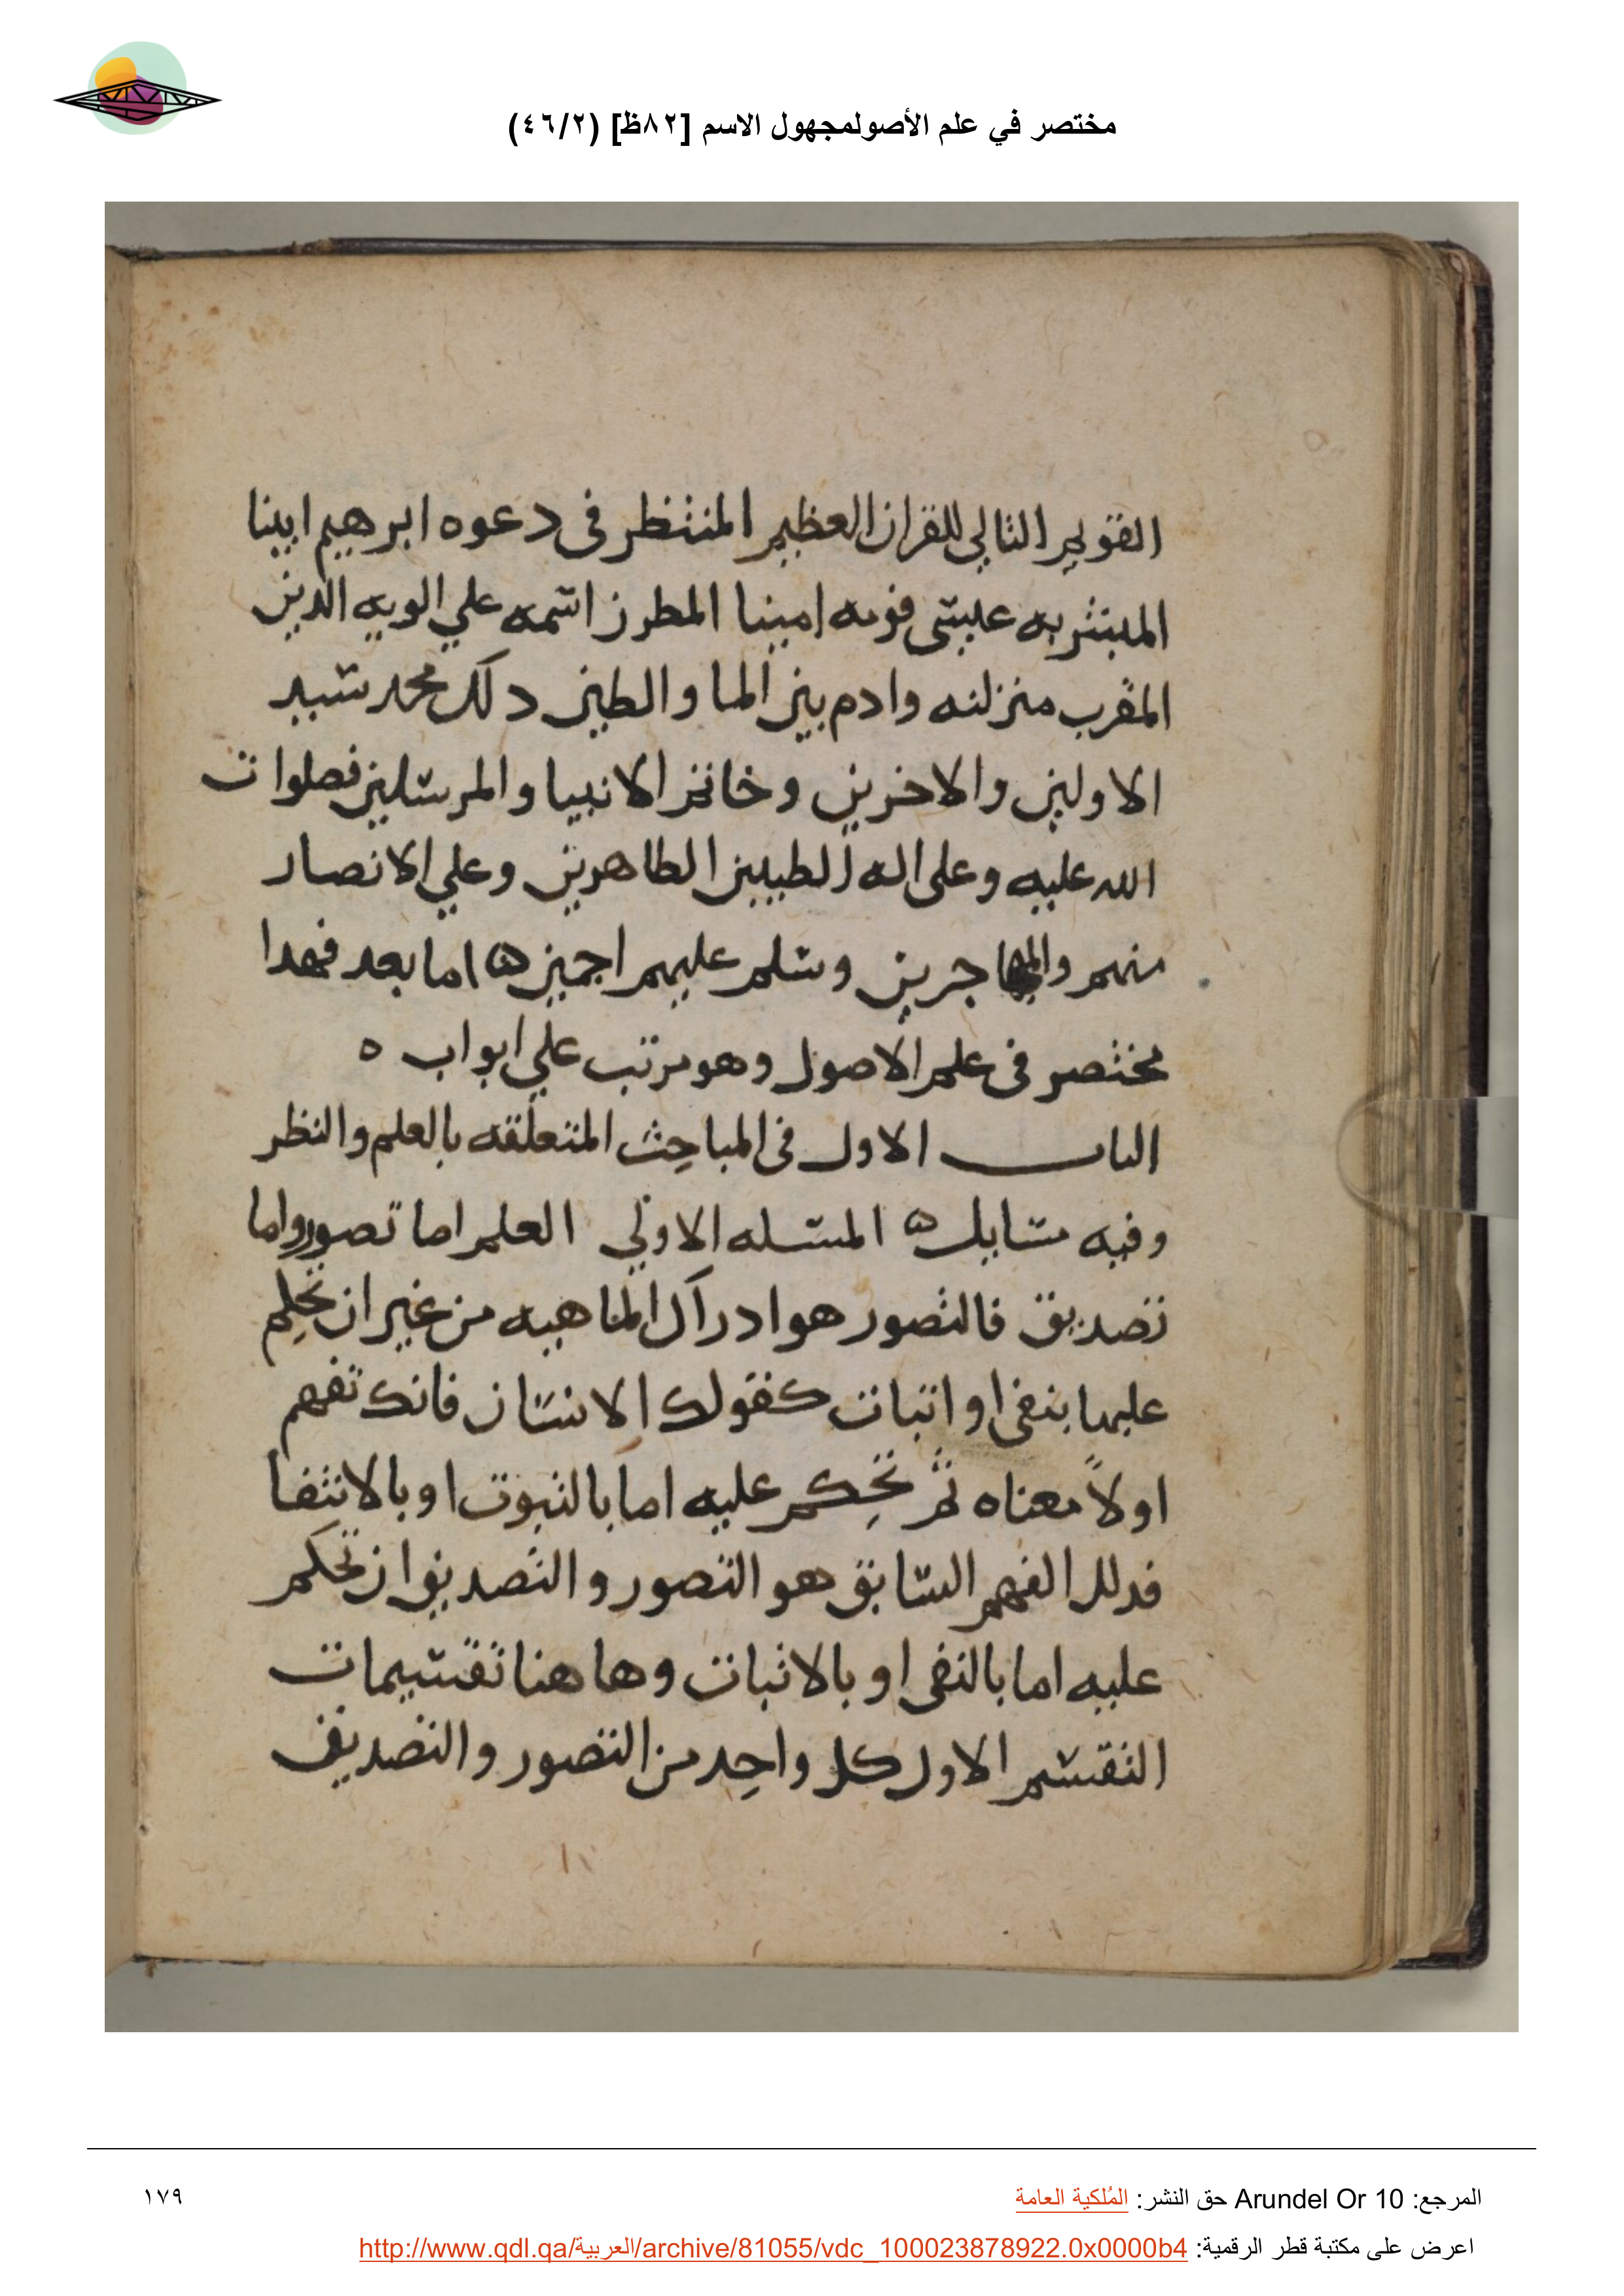 مختصر في علم الأصولمجهول الاسم [٨٢ظ] (٤٦/٢)
القويم التالي للقران العظيم المنتظر في دعوه ابرهيم ابينا
المبشر به عيسى قومه امينا المطرز اسمه علي الويه الدين
المقرب منزلته وادم بين الما والطين دلك محمد سيد
الاولين والاخرين وخاتم الانبيا والمرسلين فصلوات
الله عليه وعلى اله الطيبين الطاهرين وعلي الانصار
منهم والمهاجرين وسلم عليهم اجمين ه اما بعد فهدا
مختصر في علم الاصول وهو مرتب علي ابواب ه
الباب الاول في المباحث المتعلقه بالعلم والنظر
وفيه مسايل ه المسله الاولي العلم اما تصور واما
تصديق فالتصور هو ادراك الماهيه من غير ان تحكم
عليها بنفي او اثبات كقولك الانسان فانك تفهم
اولاً معناه ثم تحكم عليه اما بالثبوت او بالانتفا
فدلك الفهم السابق هو التصور والتصديق ان تحكم
عليه اما بالنفي او بالاثبات وهاهنا تقسيمات
التقسيم الاول كل واحد من التصور والتصديق
المرجع: Arundel Or 10 حق النشر: المُلكية العامة
١٧٩
اعرض على مكتبة قطر الرقمية: http://www.qdl.qa/العربية/archive/81055/vdc_100023878922.0x0000b4